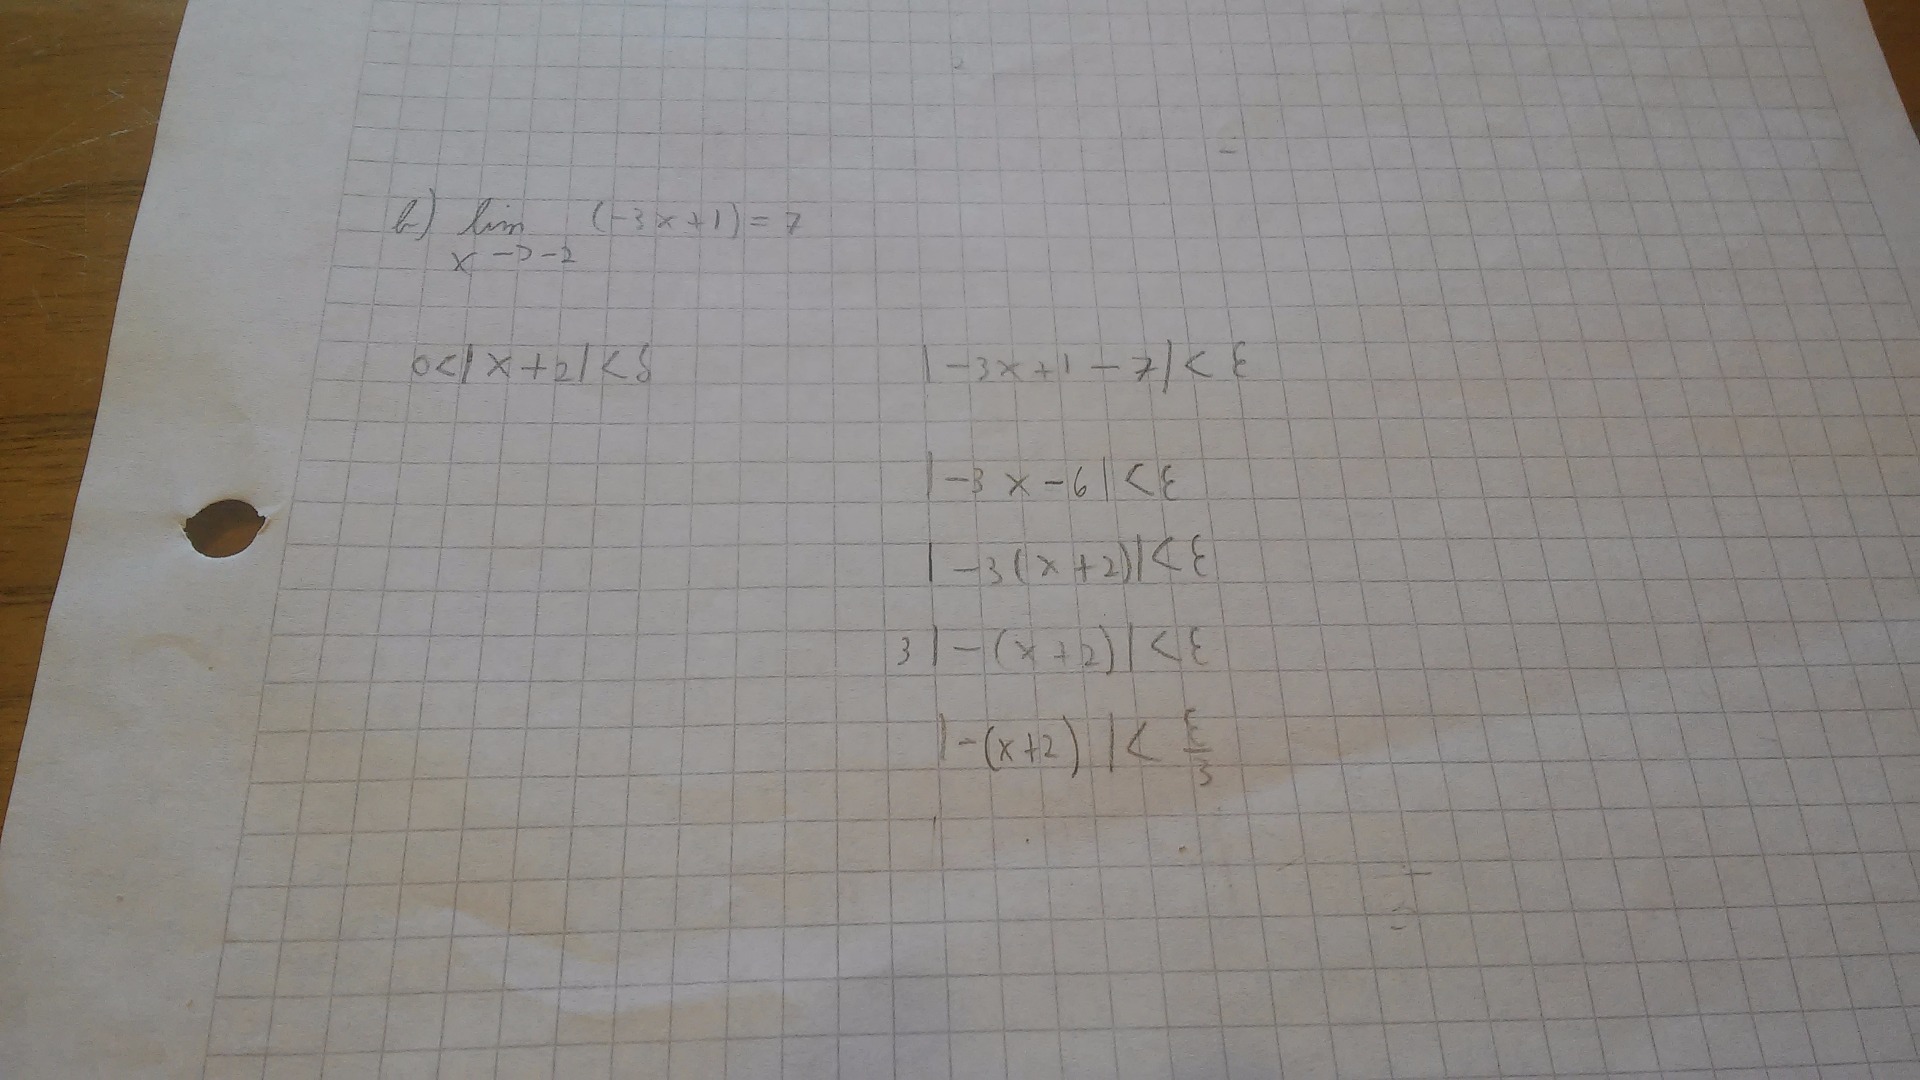 b) lim (-3x+1) = 7
x -> -2
0<|x+2|<δ |-3x+1-7|<ε
|-3x-6|<ε
|-3(x+2)|<ε
3|-(x+2)|<ε
|-(x+2)|< ε/3